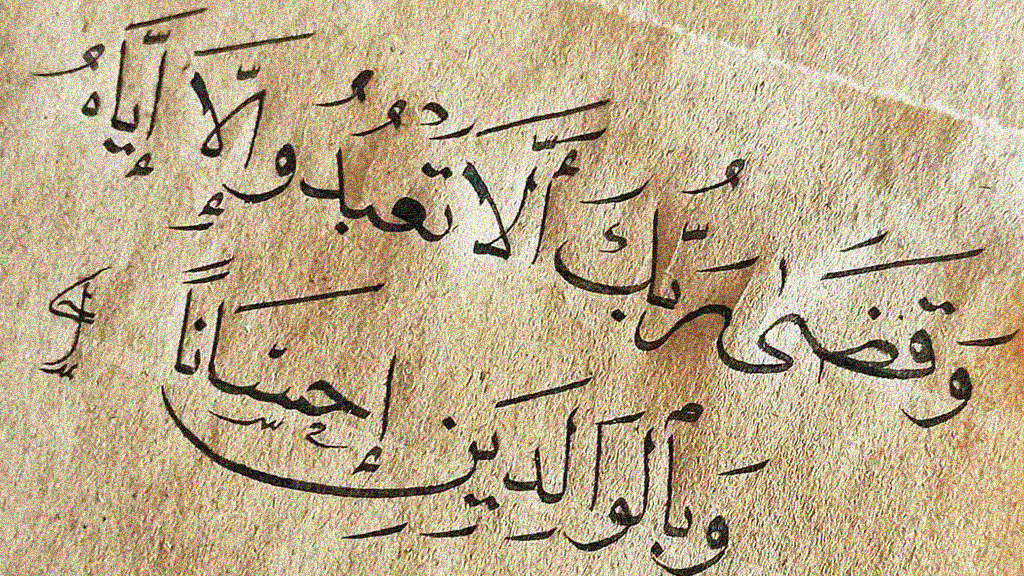 وَقَضَىٰ رَبُّكَ أَلَّا تَعْبُدُوا إِلَّا إِيَّاهُ
وَبِالْوَالِدَيْنِ إِحْسَانًا